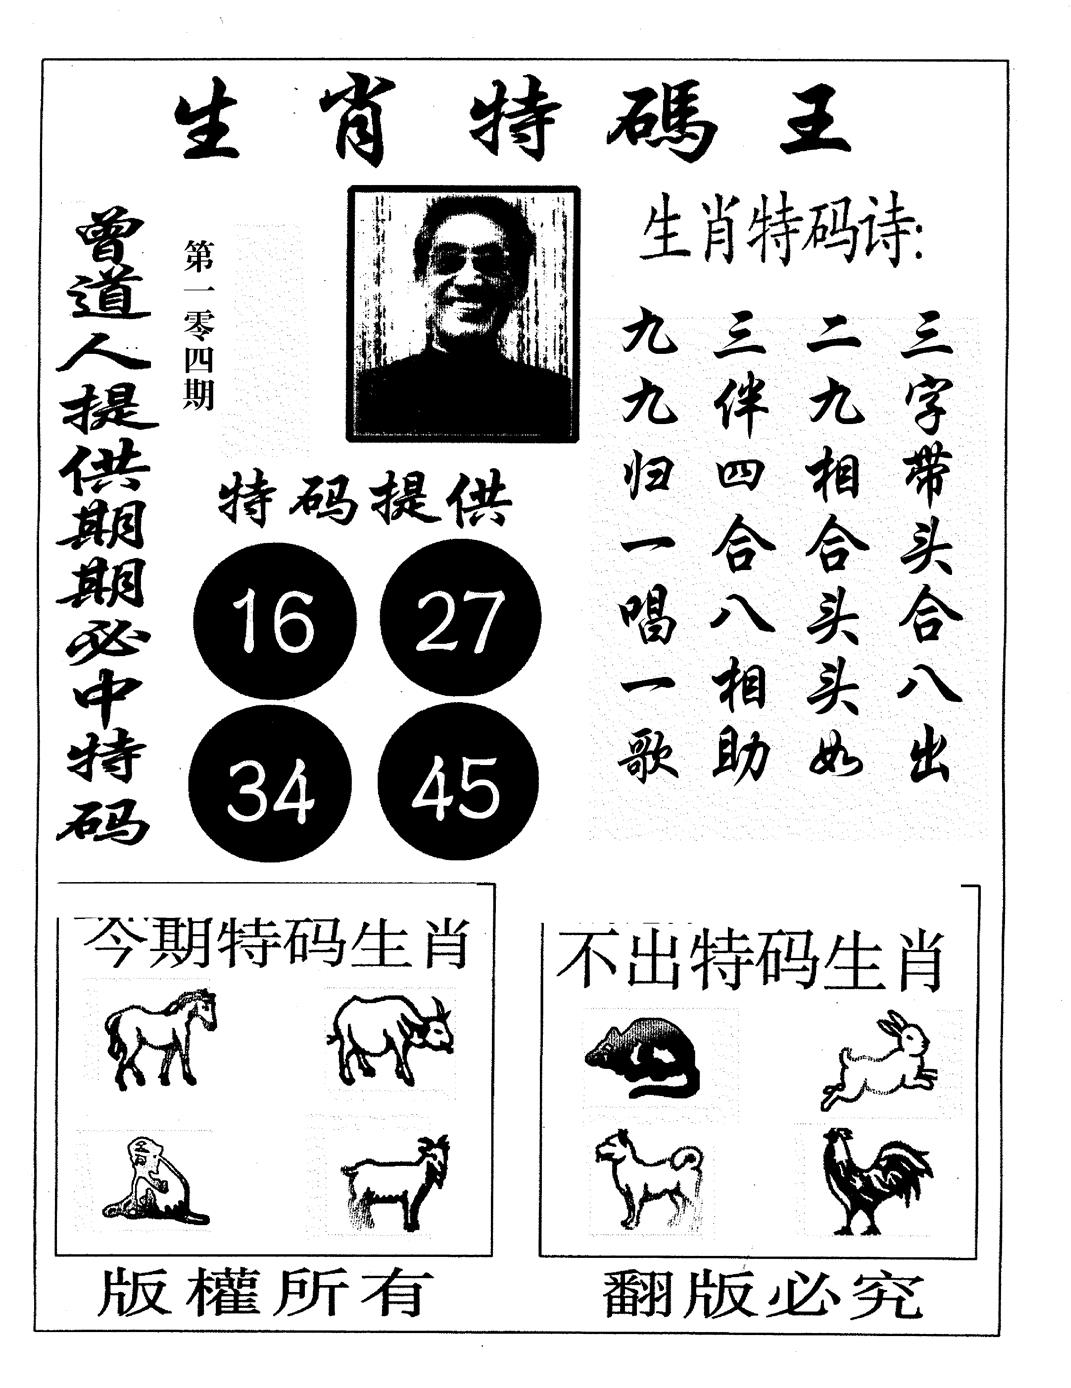 生肖特碼王
曾道人提供期期必中特码
第一零四期
生肖特码诗:
三字带头合八出
二九相合头头如
三伴四合八相助
九九归一唱一歌
特码提供
16 27
34 45
今期特码生肖
不出特码生肖
版權所有
翻版必究